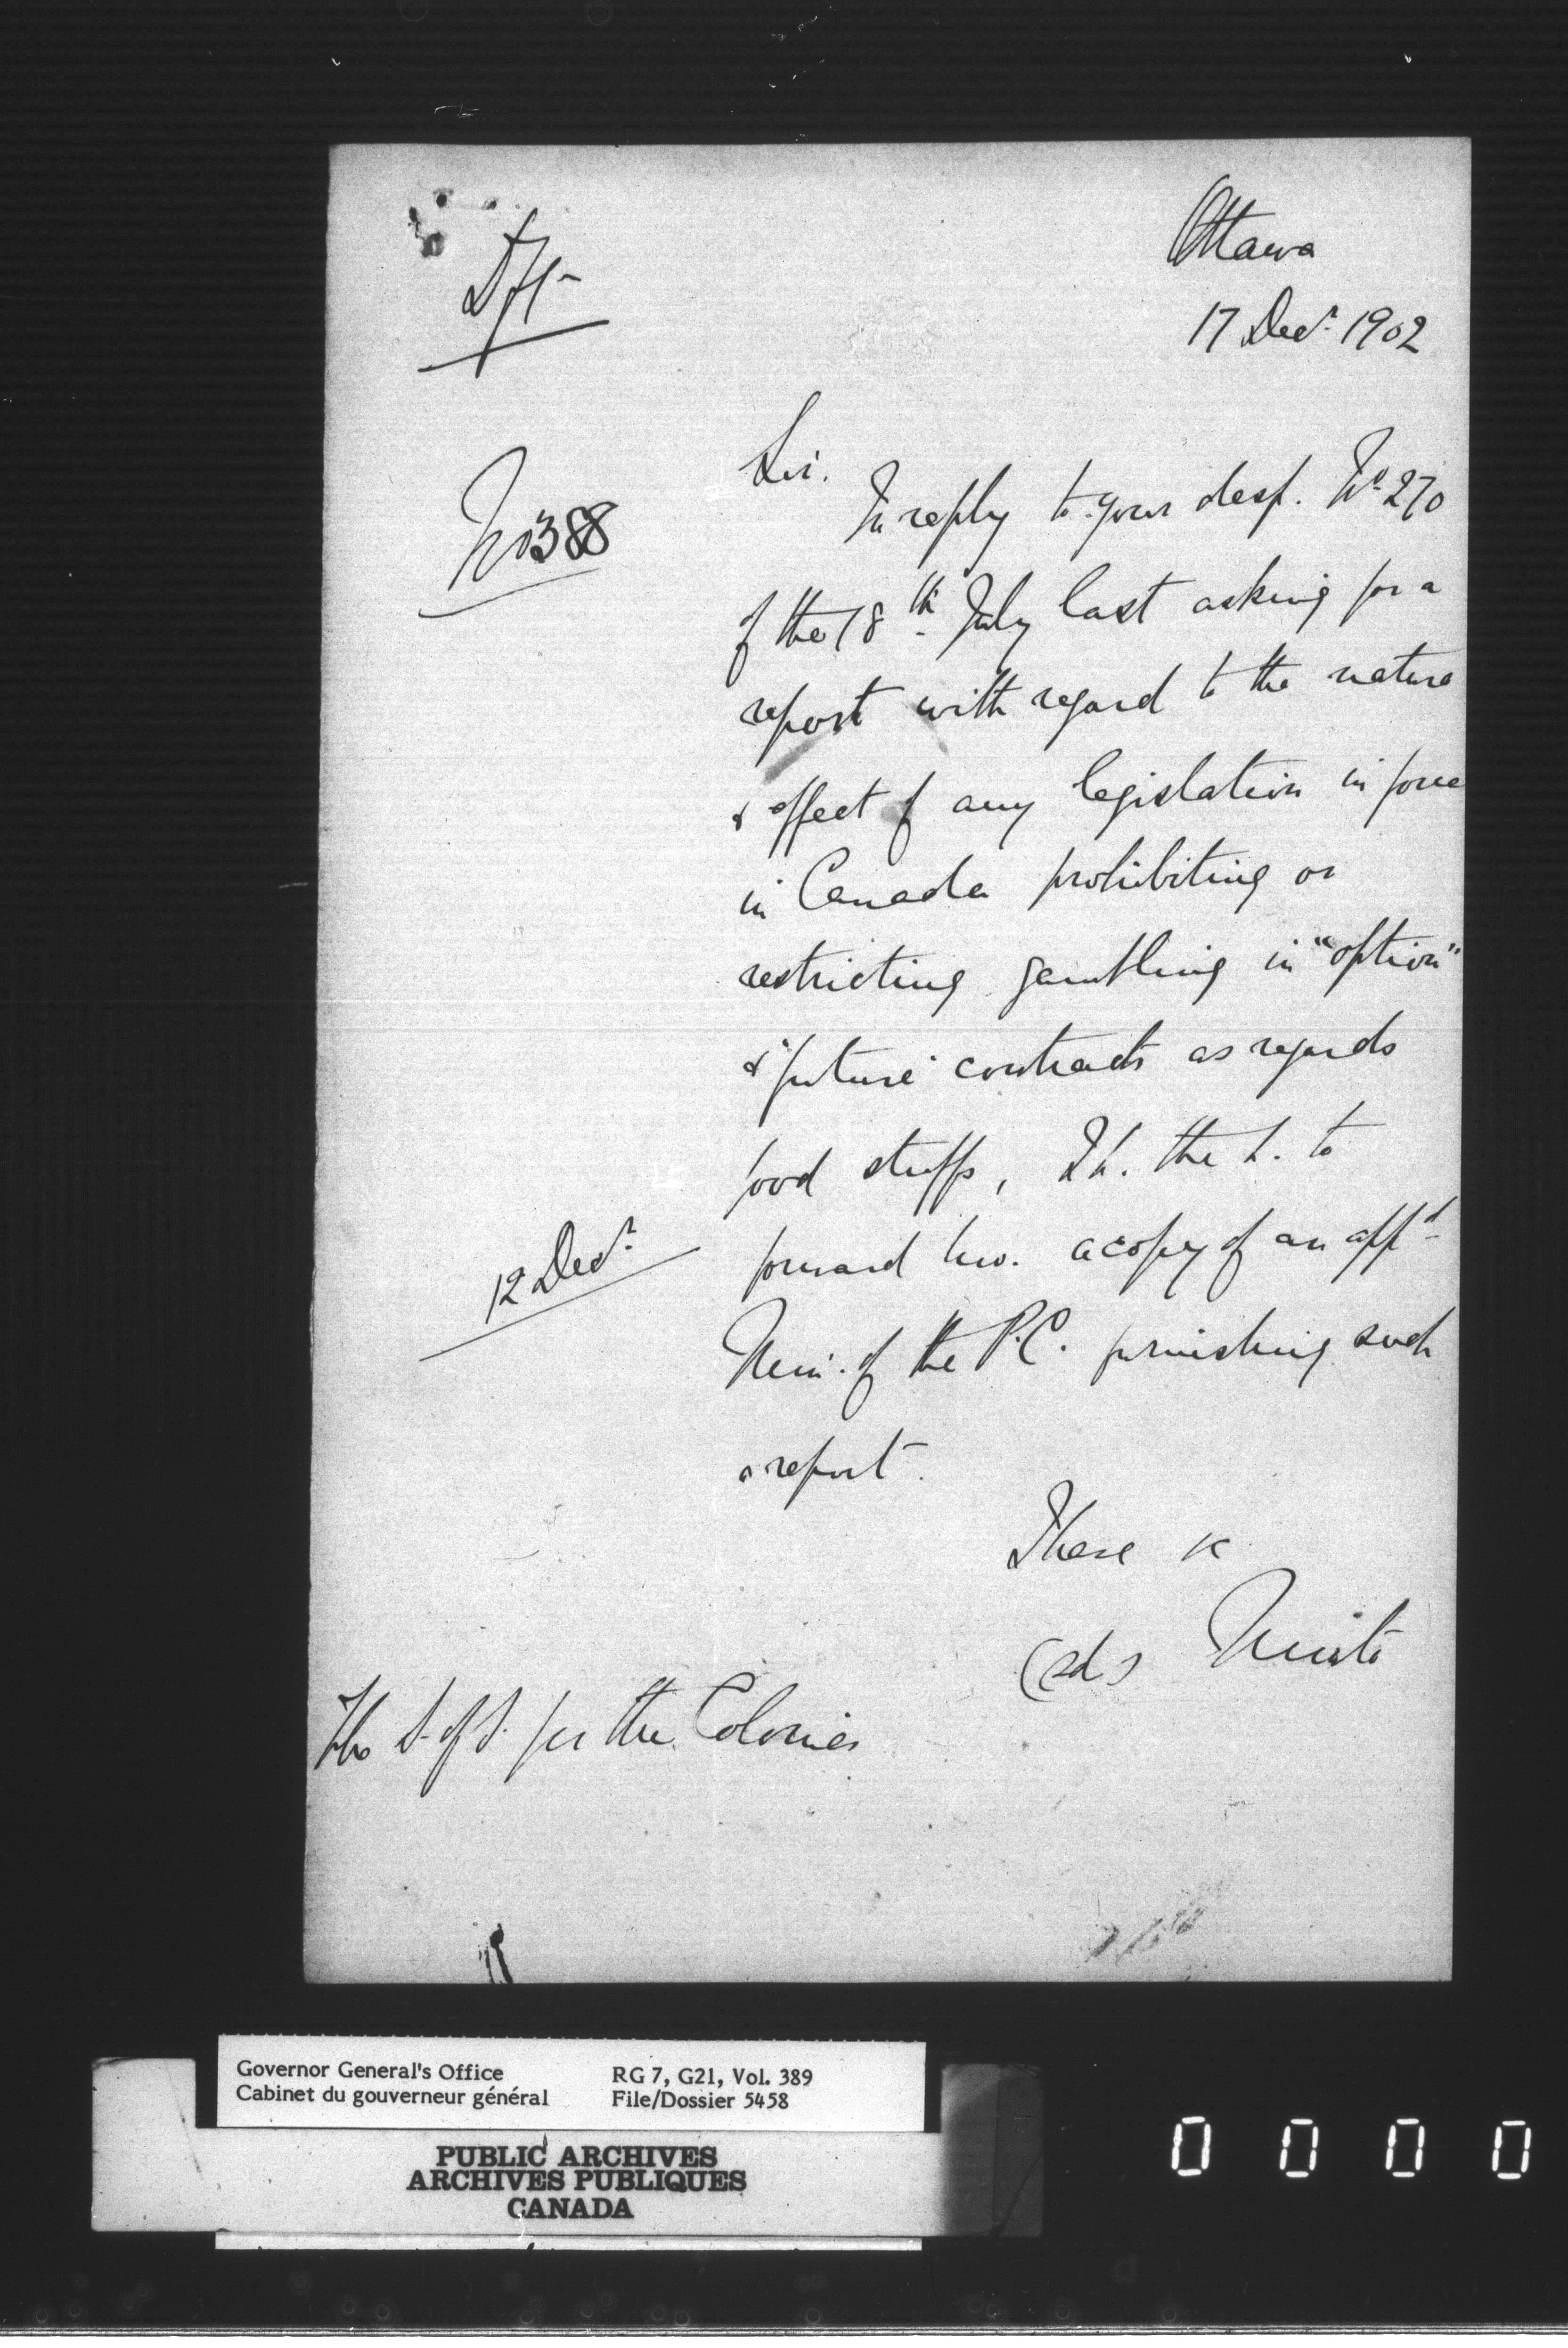 Dft
Ottawa
17 Decr. 1902
No 388
Sir.
In reply to your desp. No. 270
of the 18th July last asking for a
report with regard to the nature
& effect of any legislation in force
in Canada prohibiting or
restricting gambling in "option"
& "future" contracts as regards
food stuffs, I h. the h. to
12 Decr.
forward hw. a copy of an appd
Min. of the P.C. furnishing such
a report.
I have &c
(sd) Minto
The S. of S. for the Colonies
Governor General's Office RG 7, G21, Vol. 389
Cabinet du gouverneur général File/Dossier 5458
PUBLIC ARCHIVES
ARCHIVES PUBLIQUES
CANADA
0 0 0 0